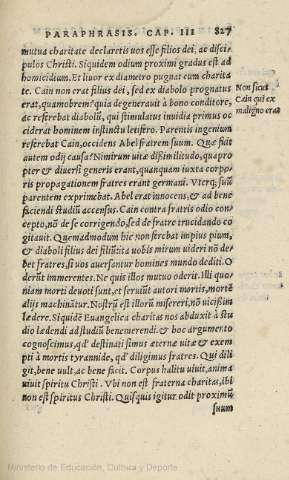 PARAPHRASIS. CAP. III 827
mutua charitate declaretis uos esse filios dei, ac disci-
pulos Christi. Siquidem odium proximi gradus est ad
homicidium. Et liuor ex diametro pugnat cum charita
te. Cain non erat filius dei, sed ex diabolo prognatus
erat, quamobrem? quia degenerauit à bono conditore,
ac referebat diabolũ, qui stimulatus inuidia primus oc
ciderat hominem instinctu letifero. Parentis ingenium
referebat Cain, occidens Abel fratrem suum. Quæ fuit
autem odij causa? Nimirum uitæ dißimilitudo, quapro
pter & diuersi generis erant, quanquam iuxta corpo-
ris propagationem fratres erant germani. Vterq; suũ
parentem exprimebat. Abel erat innocens, & ad bene
faciendi studiũ accensus. Cain contra fratris odio con-
cepto, nõ de se corrigendo, sed de fratre trucidando co
gitauit. Quemadmodum hic non ferebat impius pium,
& diaboli filius dei filiũ, ita uobis mirum uideri nõ de-
bet fratres, si uos auersantur homines mundo dediti. O
derũt immerentes. Ne quis illos mutuo oderit. Illi quo-
niam morti deuoti sunt, et seruiũt autori mortis, mortẽ
alijs machinãtur. Nostrũ est illorũ misereri, nõ uicißim
lædere. Siquidẽ Euangelica charitas nos abduxit à stu
dio lædendi ad studiũ benemerendi. & hoc argumento
cognoscimus, qd' destinati simus æternæ uitæ & exem
pti à mortis tyrannide, qd' diligimus fratres. Qui dili
git, bene uult, ac bene facit. Corpus halitu uiuit, anima
uiuit spiritu Christi. Vbi non est fraterna charitas, ibi
non est spiritus Christi. Quisquis igitur odit proximũ
suum
Non sicut
Cain qui ex
maligno erat
Ministerio de Educación, Cultura y Deporte